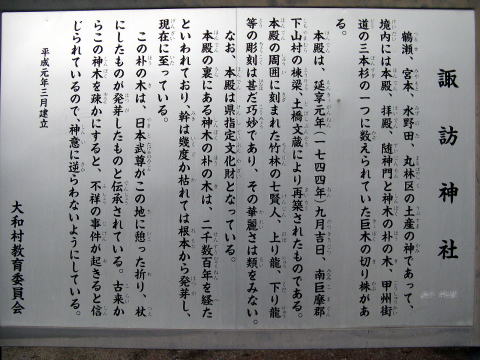 諏訪神社
鶴瀬、宮本、水野田、丸林区の土産の神であって、
境内には本殿、拝殿、随神門と神木の朴の木、甲州街
道の三本杉の一つに数えられていた巨木の切り株があ
る。
本殿は、延享元年(一七四四年)九月吉日、南巨摩郡
下山村の棟梁、土橋文蔵により再築されたものである。
本殿の周囲に刻まれた竹林の七賢人、上り龍、下り龍
等の彫刻は甚だ巧妙であり、その華麗さは類をみない。
なお、本殿は県指定文化財となっている。
本殿の裏にある神木の朴の木は、二千数百年を経た
といわれており、幹は幾度か枯れては根本から発芽し、
現在に至っている。
この朴の木は、日本武尊がこの地に憩った折り、杖
にしたものが発芽したものと伝承されている。古来か
らこの神木を疎かにすると、不祥の事件が起きると信
じられているので、神意に逆らわないようにしている。
平成元年三月建立
大和村教育委員会